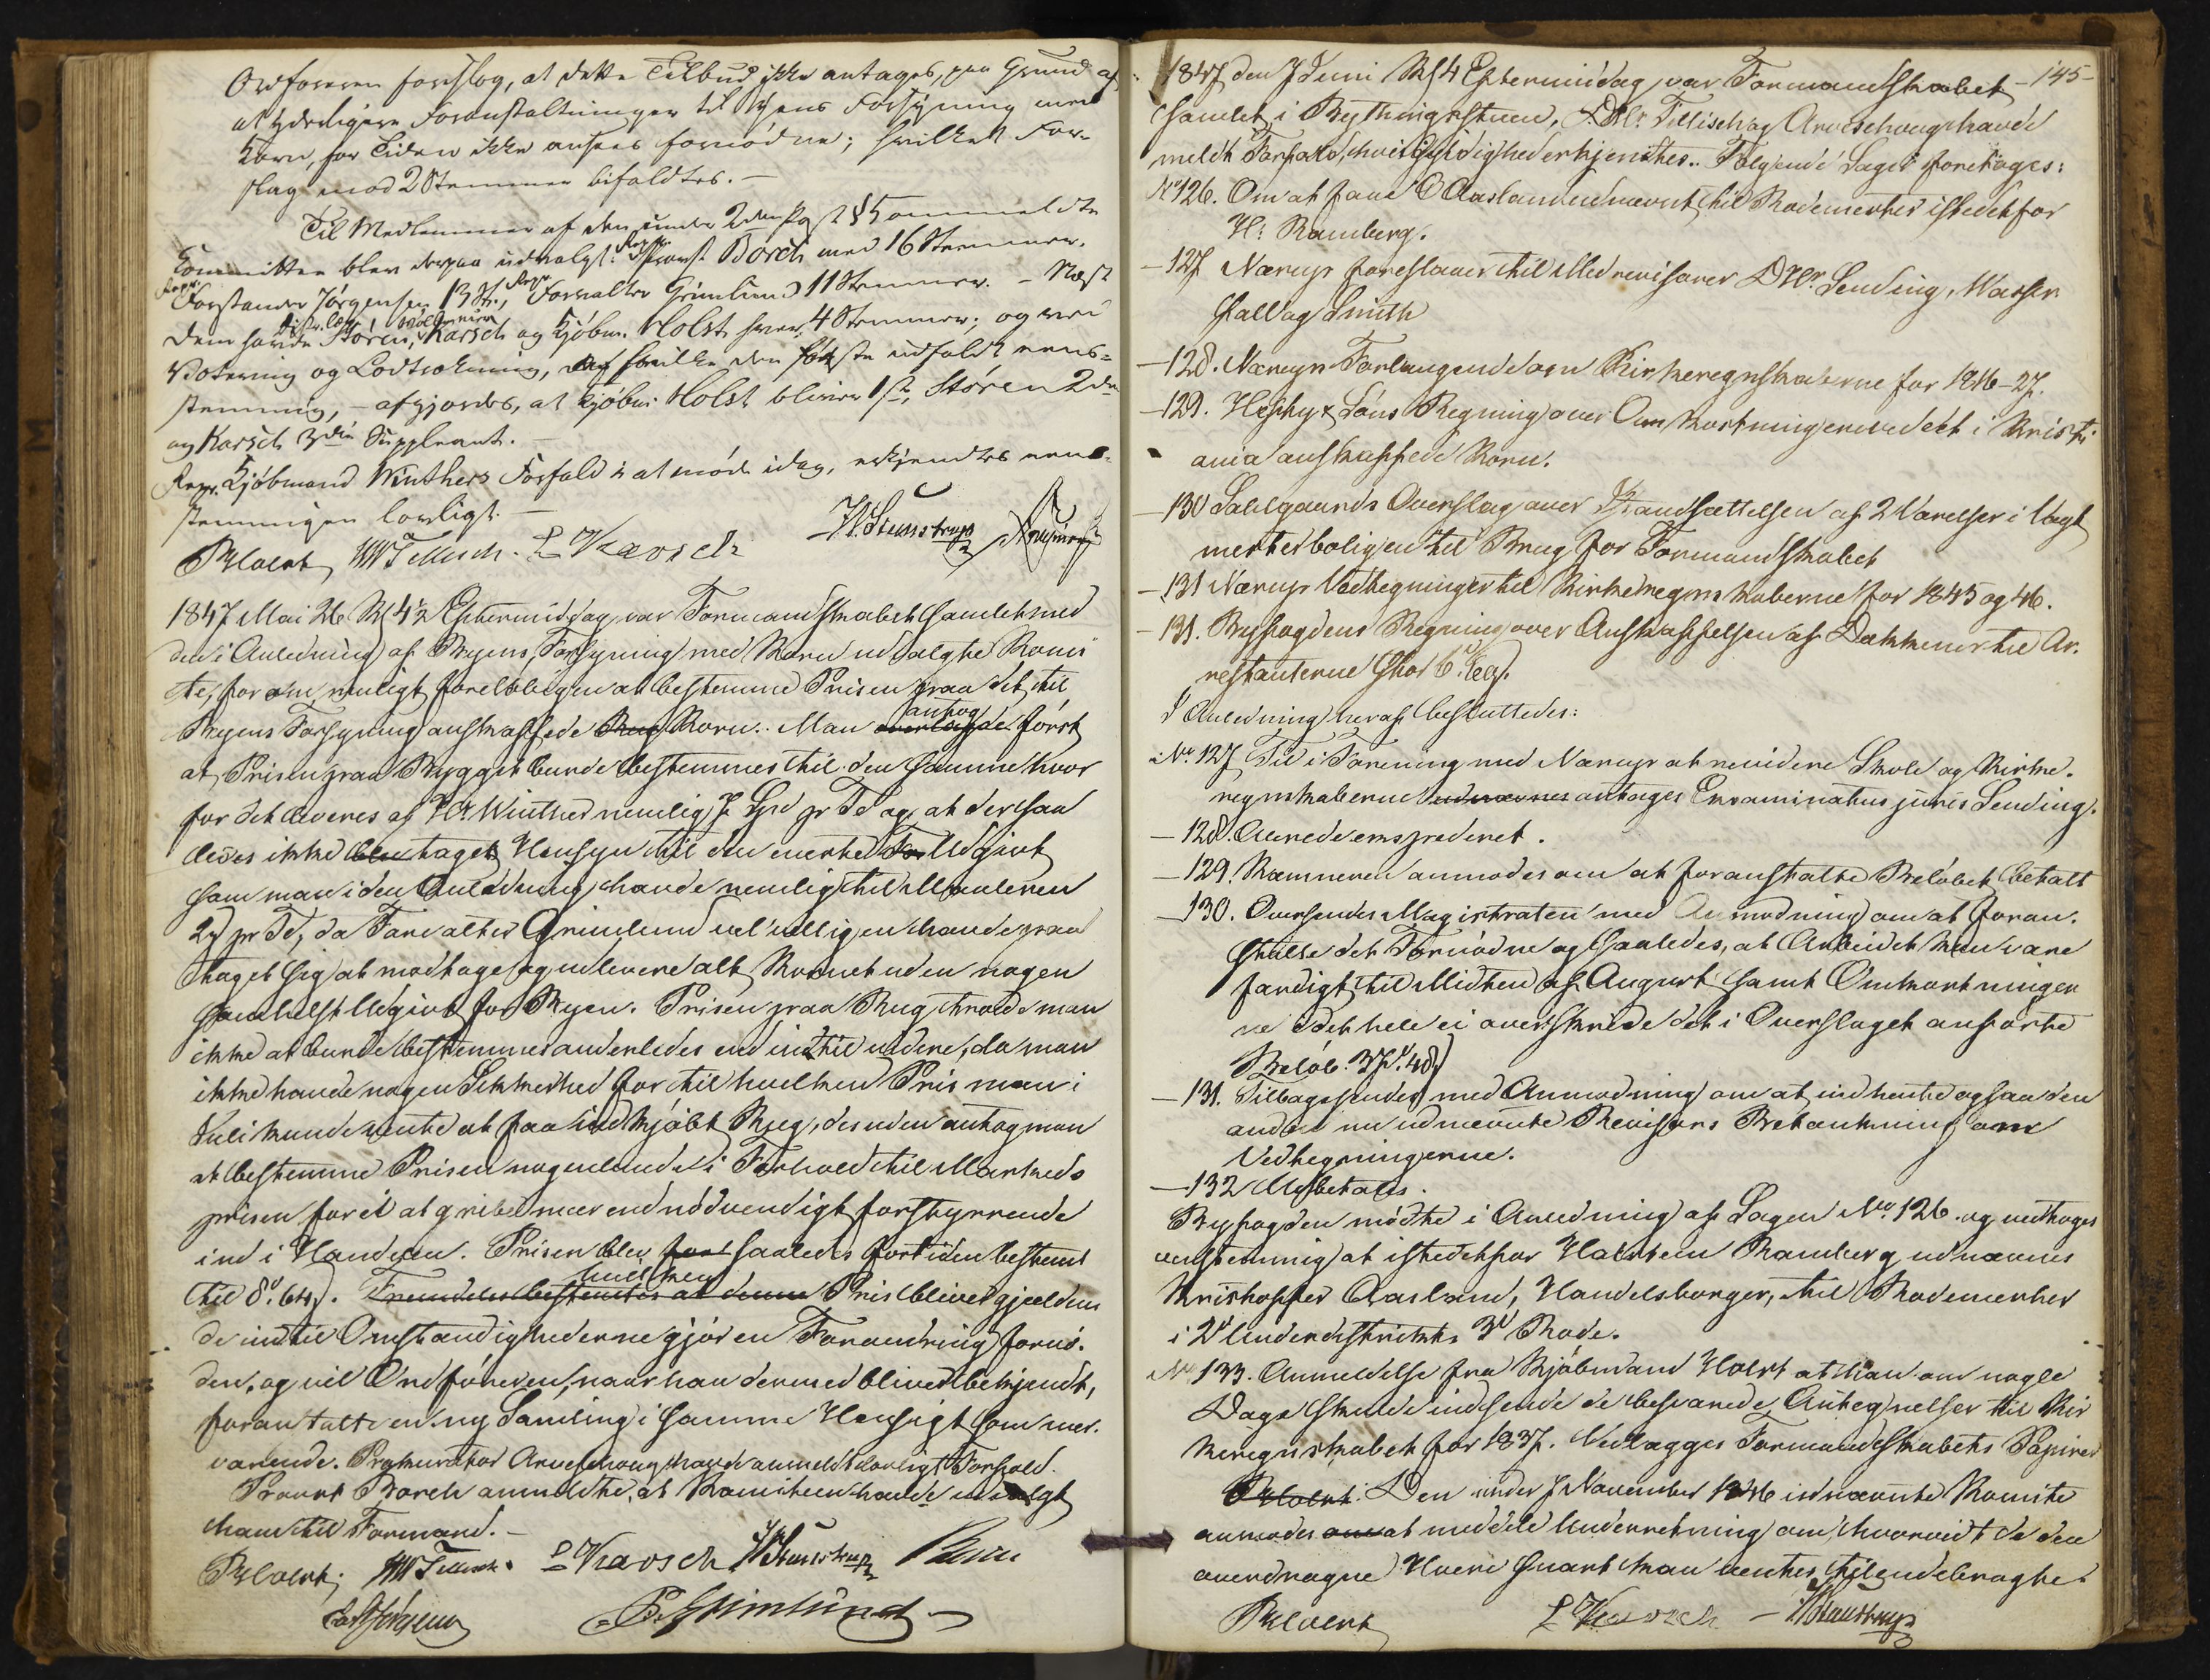 Ordføreren foreslog, at dette Tilbud ikke antages, paa Grund af
at yderligere Foranstaltninger til Byens Forsyning med
Korn, for Tiden ikke ansees fornødne; hvilket For-
slag mod 2 Stemmer bifaldtes. —
Til Medlemmer af den under 2den Post § 5 ommeldte
Committee blev derpaa udvalgt: Repr. Provst Borch med 16 Stemmer.
Repr. Forstander Jørgensen 13 St., Repr. Forvalter Grimlund 11 Stemmer. – Næst
dem havde Støren, Karsch og Kjøbm. Holst hver 4 Stemmer; og ved
Votering og Lodtrækning, af hvilke den første udfaldt eens-
stemmig, – afgjordes, at Kjøbm. Holst bliver 1ste, Støren 2den
og Karsch 3die Suppleant. —
Repr. Kjøbmand Winthers Forfald i at møde idag, erkjendtes eens-
stemmigen lovligt. —
P Holst MW Tillisch. L Karsch H. Stenstrup
1847 Mai 26 Kl 4½ Eftermiddag, var Formandskabet samlet med
den i Anledning af Byens Forsyning med Korn udvalgte Komi
te, for om muligt foreløbigen at bestemme Prisen paa det til
Byens Forsyning anskaffede Korn. Man antog først
at Prisen paa Bygget burde bestemmes til den samme hvor
for det leveres af H. Winther nemlig 7 Spd pr Td og at der saa
ledes ikke toges Hensyn til den enkelte Udgivt
som man i den Anledning havde nemlig til Maaleren
2 ß pr Td, da Forvalter Grimlund velvilligen havde paa
taget sig at modtage og udlevere alt Kornet uden nogen
somhelst Udgivt for Byen. Prisen paa Rug troede man
ikke at burde bestemmes anderledes end indtil videre, da man
ikke havde nogen Sikkerhed for til hvilken Pris man i
Juli kunde vente at faa indkjøbt Byg, desuden antog man
at bestemme Prisen nogenlunde i Forhold til Markeds
prisen for ei at gribe mer end nødvendigt forstyrrende
ind i Handelen. Prisen blev saaledes for tiden bestemt
til 8 d. 64 ß. Fremdeles bestemtes at denne hvilken Pris bliver gjælden
de indtil Omstændighederne gjør en Forandring fornø-
den, og vil Ordføreren, naar han dermed bliver bekjendt,
foranstalte en ny Samling i samme Hensigt som nær-
værende. Prokurator Arveschoug havde anmeldt lovligt Forfald.
Provst Borch anmeldte, at Komiteen havde udvalgt
ham til Formand. —
P Holst; MW Tillisch. L Karsch H Stenstrup Borch
Jørgensen P. Grimlund
1847 den 7 Juni Kl 4 Eftermiddag var Formandskabet -145-
samlet i Bythingsstuen, D.Hr. Tillisch og Arveschoug havde
meldt Forfald, hvis Gyldighed erkjendtes. Følgende Sager foretoges:
No 126. Om at faae C Aasland udnævnt til Rodemester istedetfor
H: Ramberg.
— 127 Nærup foreslaaer til Medrevisorer D Hr. Lending, Wasser
fall og Smith
— 128. Nærups Forlangende om Kirkeregnskaberne for 1816–27.
— 129. Heftye & Søns Regning over Omkostningerne ved det i Kristi
ania anskaffede Korn.
— 130 Dahlgaards Overslag over Istandsættelsen af 2 Værelser i Vagt
mesterboligen til Brug for Formandskabet
— 131 Nærups Vedtegninger til Kirkeregnskaberne for 1845 og 46.
— 131. Byfogdens Regning over Anskaffelsen af Dækkener til Ar-
restanterne
I Anledning heraf besluttedes:
No. 127 Til i Forening med Nærup at revidere Skole og Kirke-
regnskaberne antages Examinatus juris Lending.
— 128. Allerede
— 129. Kæmneren anmodes om at foranstalte Beløbet betalt
— 130. Oversendes Magistraten med Anmodning om at foran-
stalte det Fornødne og saaledes, at Arbeidet kan være
færdigt til Midten af August samt Omkostningen
ne i det hele ei overskrede det i Overslaget anførte
Beløb.
— 131. Tilbagesendes med Anmodning om at indhente ogsaa den
anden nu udnævnte Revisors Betænkning over
Vedtegningerne.
— 132 Udbetales.
Byfogden mødte i Anledning af Sagen No. 126. og vedtoges
eenstemmig at istedetfor Halvtein Ramberg udnævnes
Kristoffer Aasland, Handelsborger, til Rodemester
i 2d Underdistrikts 3d Rode.
No 133. Anmeldelse fra Kjøbmand Holst at han om nogle
Dage skulde indsende de besvarede Antegnelser til Kir
keregnskabet for 1837. Vedlægges Formandskabets Papirer
P Holst. Den under 7 November 1846 udnævnte Komite
anmodes at meddele Underretning om, hvorvidt de den
overdragne Hverv snart kan ventes tilendebragte.
P Holst L Karsch — H Stenstrup